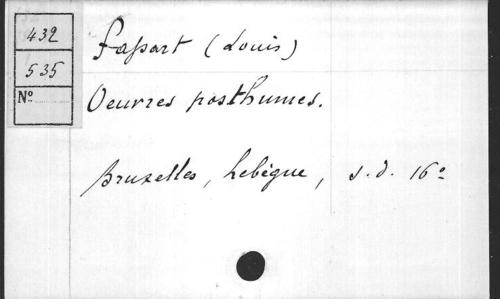 432
535
Nº
Fassart (Louis)
Oeuvres posthumes.
Bruxelles, Lebègue, s.d. 16º